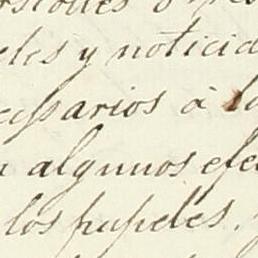 y noticia
cessarios á lo
algunos efec
los papeles.